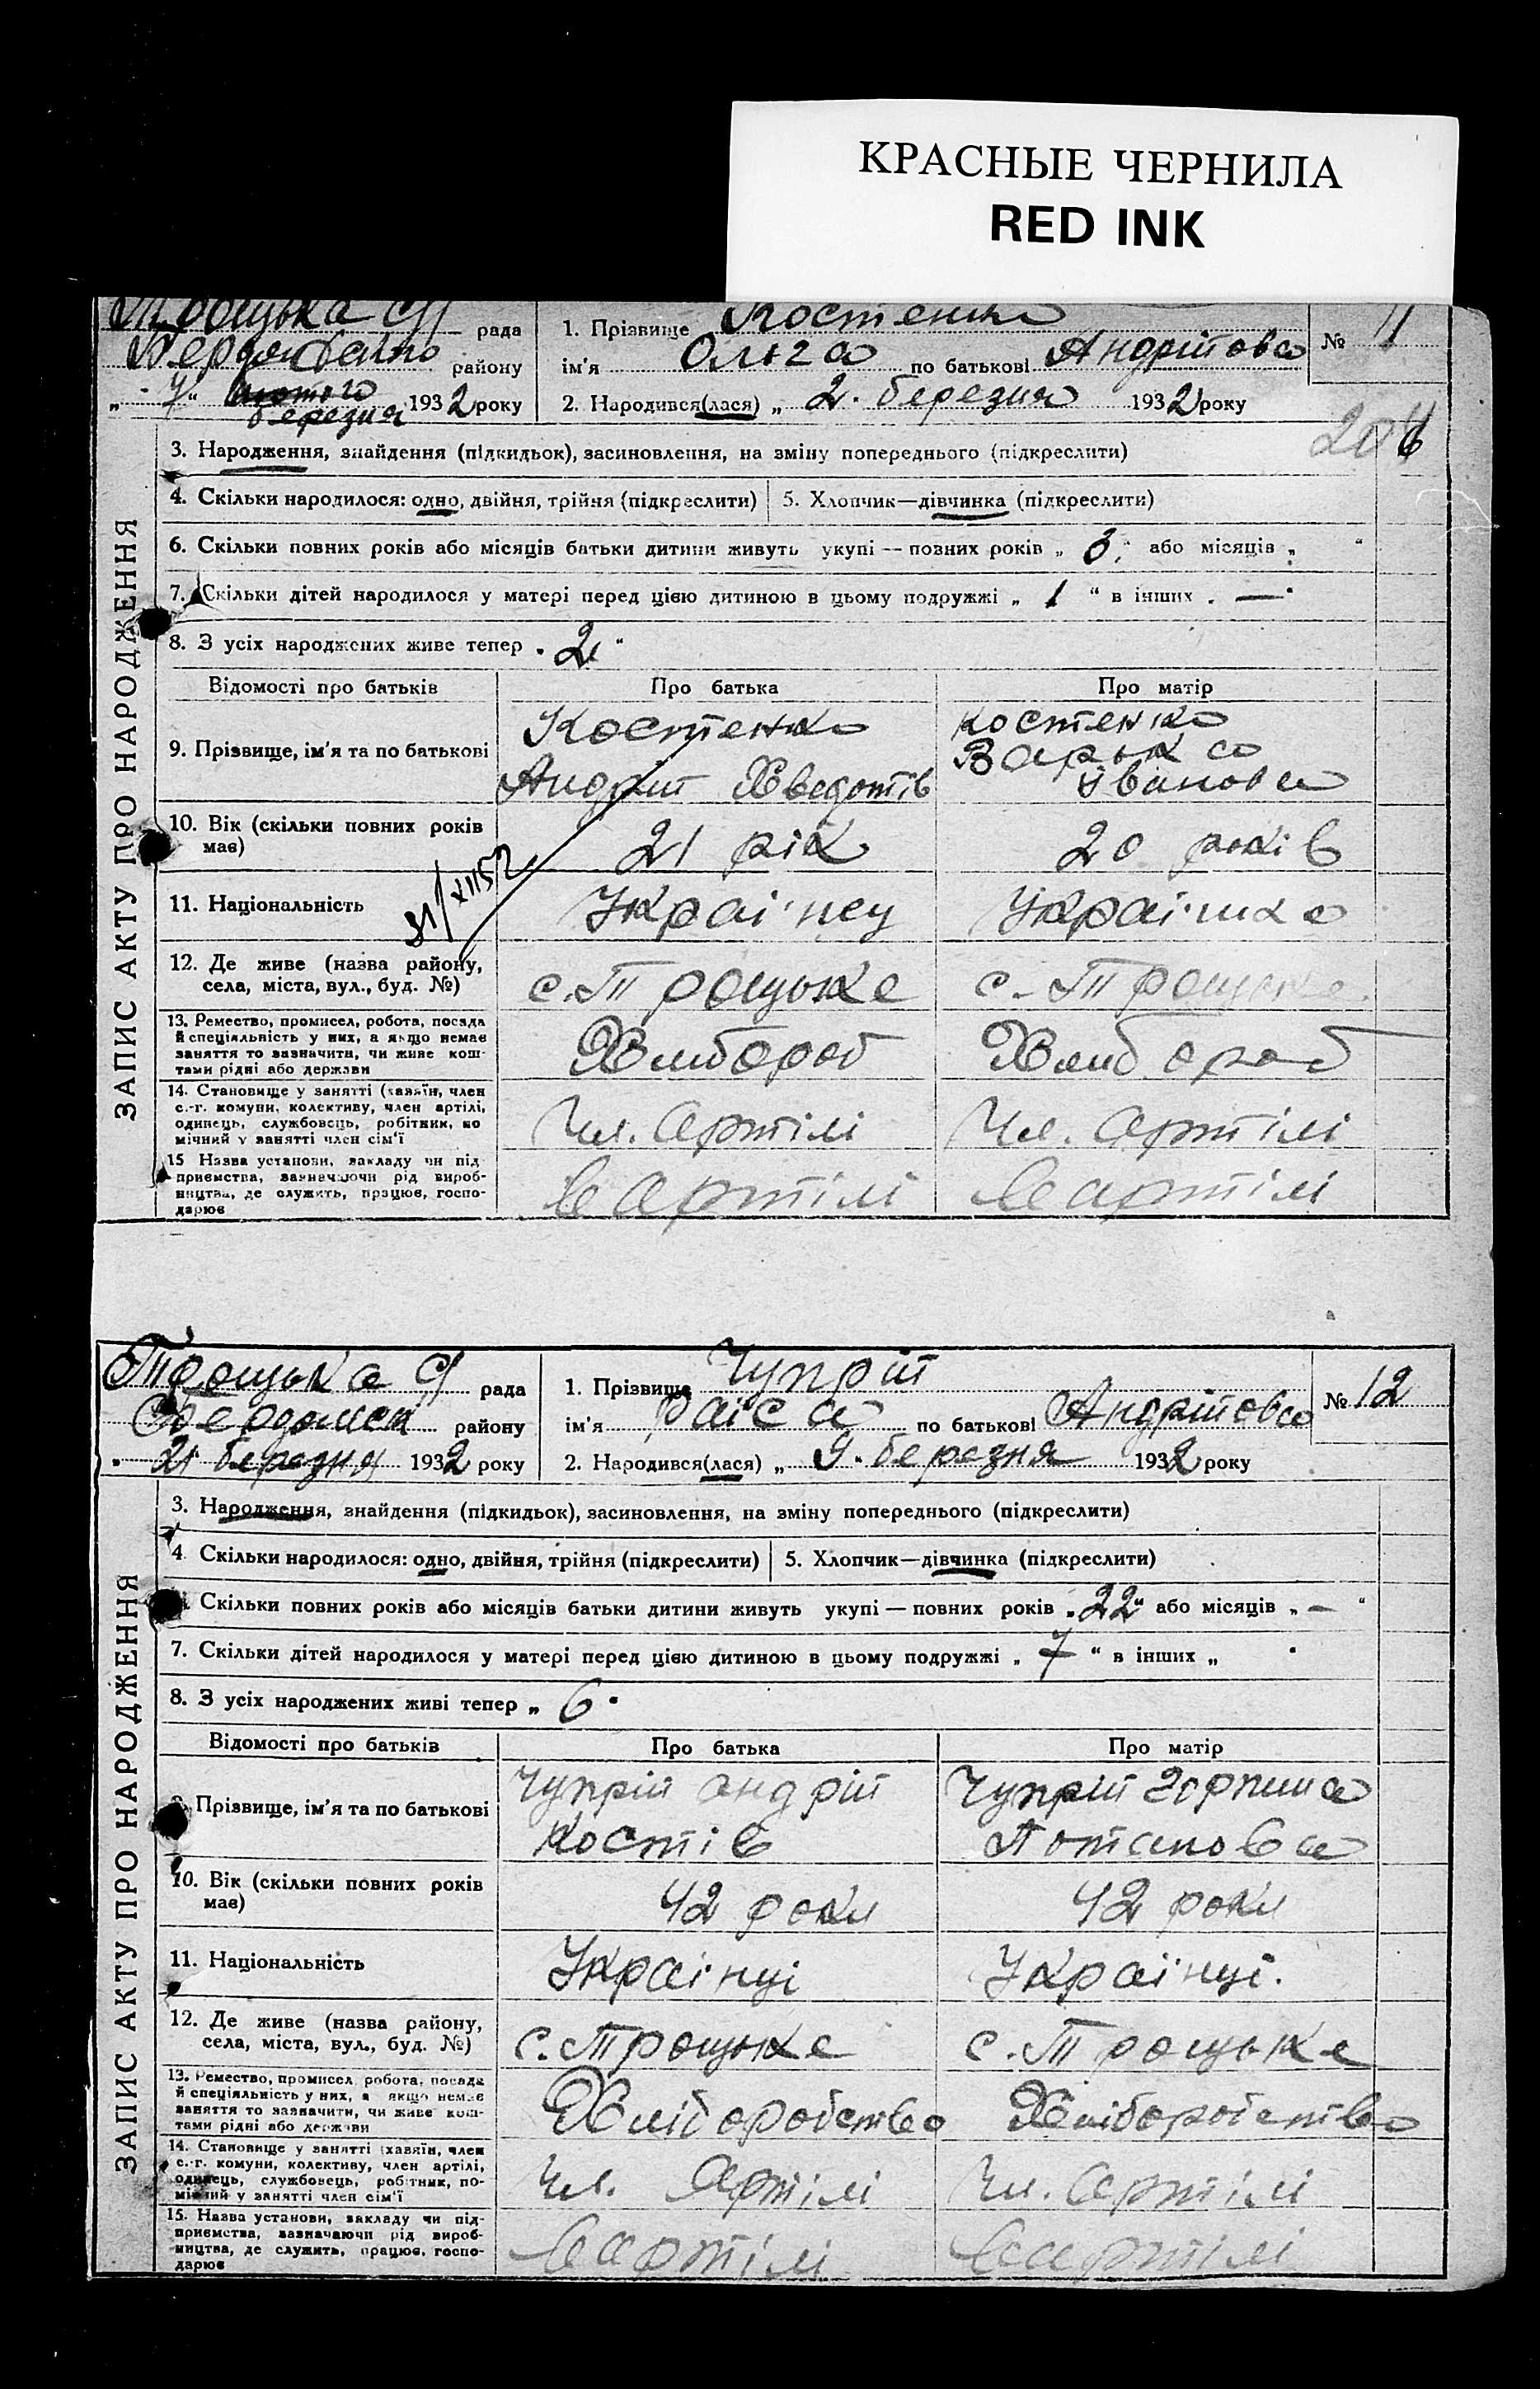 КРАСНЫЕ ЧЕРНИЛА
RED INK
Троцька С/ рада
району
„ 7 “ лютого березня 1932 року
1. Прізвище Костенко
ім'я Ольга по батькові Андрітова
2. Народився(лася) „ 2. березня 1932 року
№ 11
3. Народження, знайдення (підкидьок), засиновлення, на зміну попереднього (підкреслити)
4. Скільки народилося: одно, двійня, трійня (підкреслити) 5. Хлопчик—дівчинка (підкреслити)
6. Скільки повних років або місяців батьки дитини живуть укупі — повних років „ 3 “ або місяців „ “
7. Скільки дітей народилося у матері перед цією дитиною в цьому подружжі „ 1 “ в інших „ — “
8. З усіх народжених живе тепер „ 2 “
ЗАПИС АКТУ ПРО НАРОДЖЕННЯ
Відомості про батьків Про батька Про матір
9. Прізвище, ім'я та по батькові
Костенко
Андріт Хведотів
костенко
Іванова
10. Вік (скільки повних років має) 21 рік 20 років
31/XII 52
11. Національність Українец Українка
12. Де живе (назва району, села, міста, вул., буд. №) с. Троцьке с. Троцьке
13. Ремество, промисел, робота, посада й спеціяльність у них, а якщо немає заняття то зазначити, чи живе коштами рідні або держави
Хлибороб Хлибороб
14. Становище у занятті (хазяїн, член с.-г. комуни, колективу, член артілі, одинець, службовець, робітник, помічний у занятті член сім'ї
Чл. Артілі Чл. Артілі
15 Назва установи, закладу чи підприємства, зазначаючи рід виробництва, де служить, працює, господарює
в Артілі в артілі
Троцька С/ рада
району
„ 21 березня 1932 року
1. Прізвище Чупріт
ім'я Раіса по батькові Андрітовa
2. Народився(лася) „ 9. березня 1932 року
№ 12
3. Народження, знайдення (підкидьок), засиновлення, на зміну попереднього (підкреслити)
4 Скільки народилося: одно, двійня, трійня (підкреслити) 5. Хлопчик—дівчинка (підкреслити)
Скільки повних років або місяців батьки дитини живуть укупі — повних років „ 22 “ або місяців „ — “
7. Скільки дітей народилося у матері перед цією дитиною в цьому подружжі „ 7 “ в інших „ “
8. З усіх народжених живі тепер „ 6 “
ЗАПИС АКТУ ПРО НАРОДЖЕННЯ
Відомості про батьків Про батька Про матір
Прізвище, ім'я та по батькові
Чупріт андріт
Костів
Чупріт Горпина
Потапова
10. Вік (скільки повних років має) 42 роки 42 роки
11. Національність Українці Українці.
12. Де живе (назва району, села, міста, вул., буд. №) с. Троцьке с. Троцьке
13. Ремество, промисел, робота, посада й спеціяльність у них, а якщо немає заняття то зазначити, чи живе коштами рідні або держави
Хліборобство Хліборобство
14. Становище у занятті (хазяїн, член с.-г. комуни, колективу, член артілі, одинець, службовець, робітник, помічний у занятті член сім'ї
Чл. Артілі Чл. Артілі
15. Назва установи, закладу чи підприємства, зазначаючи рід виробництва, де служить, працює, господарює
в артілі в артілі